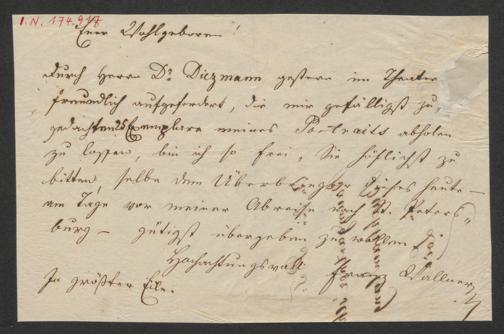 I.N. 174.917
Euer Wohlgeboren!
Durch Herrn Dr Diezmann gestern im Theater
freundlich aufgefordert, die mir gefälligst zu
gedachten Exemplare meines Portraits abholen
zu lassen, bin ich so frei, Sie höflichst zu
bitten, selbe dem Überbringer dieses heute –
am Tage vor meiner Abreise nach St. Peters=
burg – gütigst übergeben zu wollen.
Hochachtungsvoll
Franz Wallner
In größter Eile.